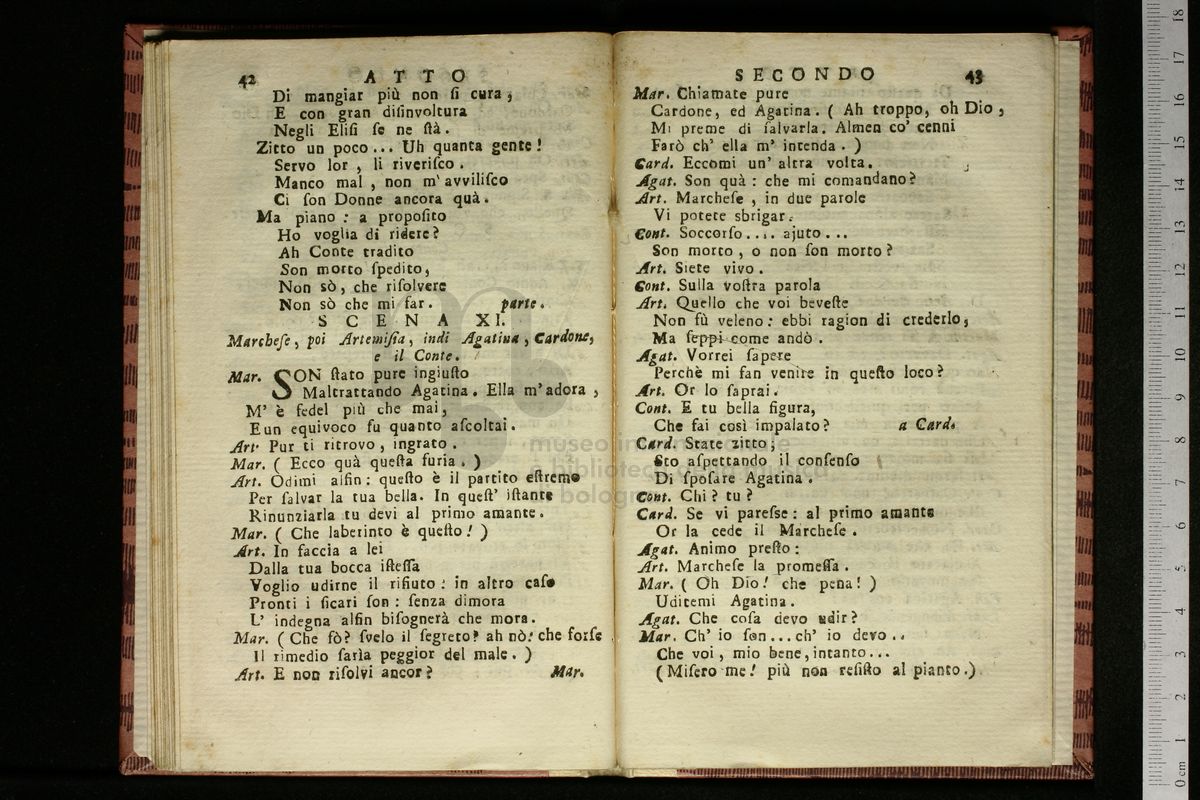 42 ATTO
Di mangiar più non ſi cura,
E con gran diſinvoltura
Negli Eliſi ſe ne ſtà.
Zitto un poco... Uh quanta gente!
Servo lor, li riveriſco.
Manco mal, non m' avviliſco
Ci ſon Donne ancora quà.
Ma piano: a propoſito
Ho voglia di ridere?
Ah Conte tradito
Son morto ſpedito,
Non sò, che riſolvere
Non sò che mi far. parte.
SCENA XI.
Marcheſe, poi Artemiſia, indi Agatina, Cardone,
e il Conte.
Mar. SON ſtato pure ingiuſto
Maltrattando Agatina. Ella m' adora,
M' è fedel più che mai,
E un equivoco fu quanto aſcoltai.
Art. Pur ti ritrovo, ingrato.
Mar. ( Ecco quà queſta furia. )
Art. Odimi alfin: queſto è il partito eſtremo
Per ſalvar la tua bella. In queſt' iſtante
Rinunziarla tu devi al primo amante.
Mar. ( Che laberinto è queſto! )
Art. In faccia a lei
Dalla tua bocca iſteſſa
Voglio udirne il rifiuto: in altro caſo
Pronti i ſicari ſon: ſenza dimora
L' indegna alfin biſognerà che mora.
Mar. ( Che fò? ſvelo il ſegreto? ah nò! che forſe
Il rimedio ſarìa peggior del male. )
Art. E non riſolvi ancor? Mar.
SECONDO 43
Mar. Chiamate pure
Cardone, ed Agatina. ( Ah troppo, oh Dio,
Mi preme di ſalvarla. Almen co' cenni
Farò ch' ella m' intenda. )
Card. Eccomi un' altra volta.
Agat. Son quà: che mi comandano?
Art. Marcheſe, in due parole
Vi potete sbrigar.
Cont. Soccorſo.... ajuto...
Son morto, o non ſon morto?
Art. Siete vivo.
Cont. Sulla voſtra parola
Art. Quello che voi beveſte
Non fù veleno: ebbi ragion di crederlo,
Ma ſeppi come andò.
Agat. Vorrei ſapere
Perchè mi fan venire in queſto loco?
Art. Or lo ſaprai.
Cont. E tu bella figura,
Che fai così impalato? a Card.
Card. State zitto;
Sto aſpettando il conſenſo
Di ſpoſare Agatina.
Cont. Chi? tu?
Card. Se vi pareſse: al primo amante
Or la cede il Marcheſe.
Agat. Animo preſto:
Art. Marcheſe la promeſſa.
Mar. ( Oh Dio! che pena! )
Uditemi Agatina.
Agat. Che coſa devo udir?
Mar. Ch' io ſon...ch' io devo..
Che voi, mio bene, intanto...
( Miſero me! più non reſiſto al pianto.)
museo internazionale
e biblioteca della musica
bologna
18
17
16
15
14
13
12
11
10
9
8
7
6
5
4
3
2
1
0 cm